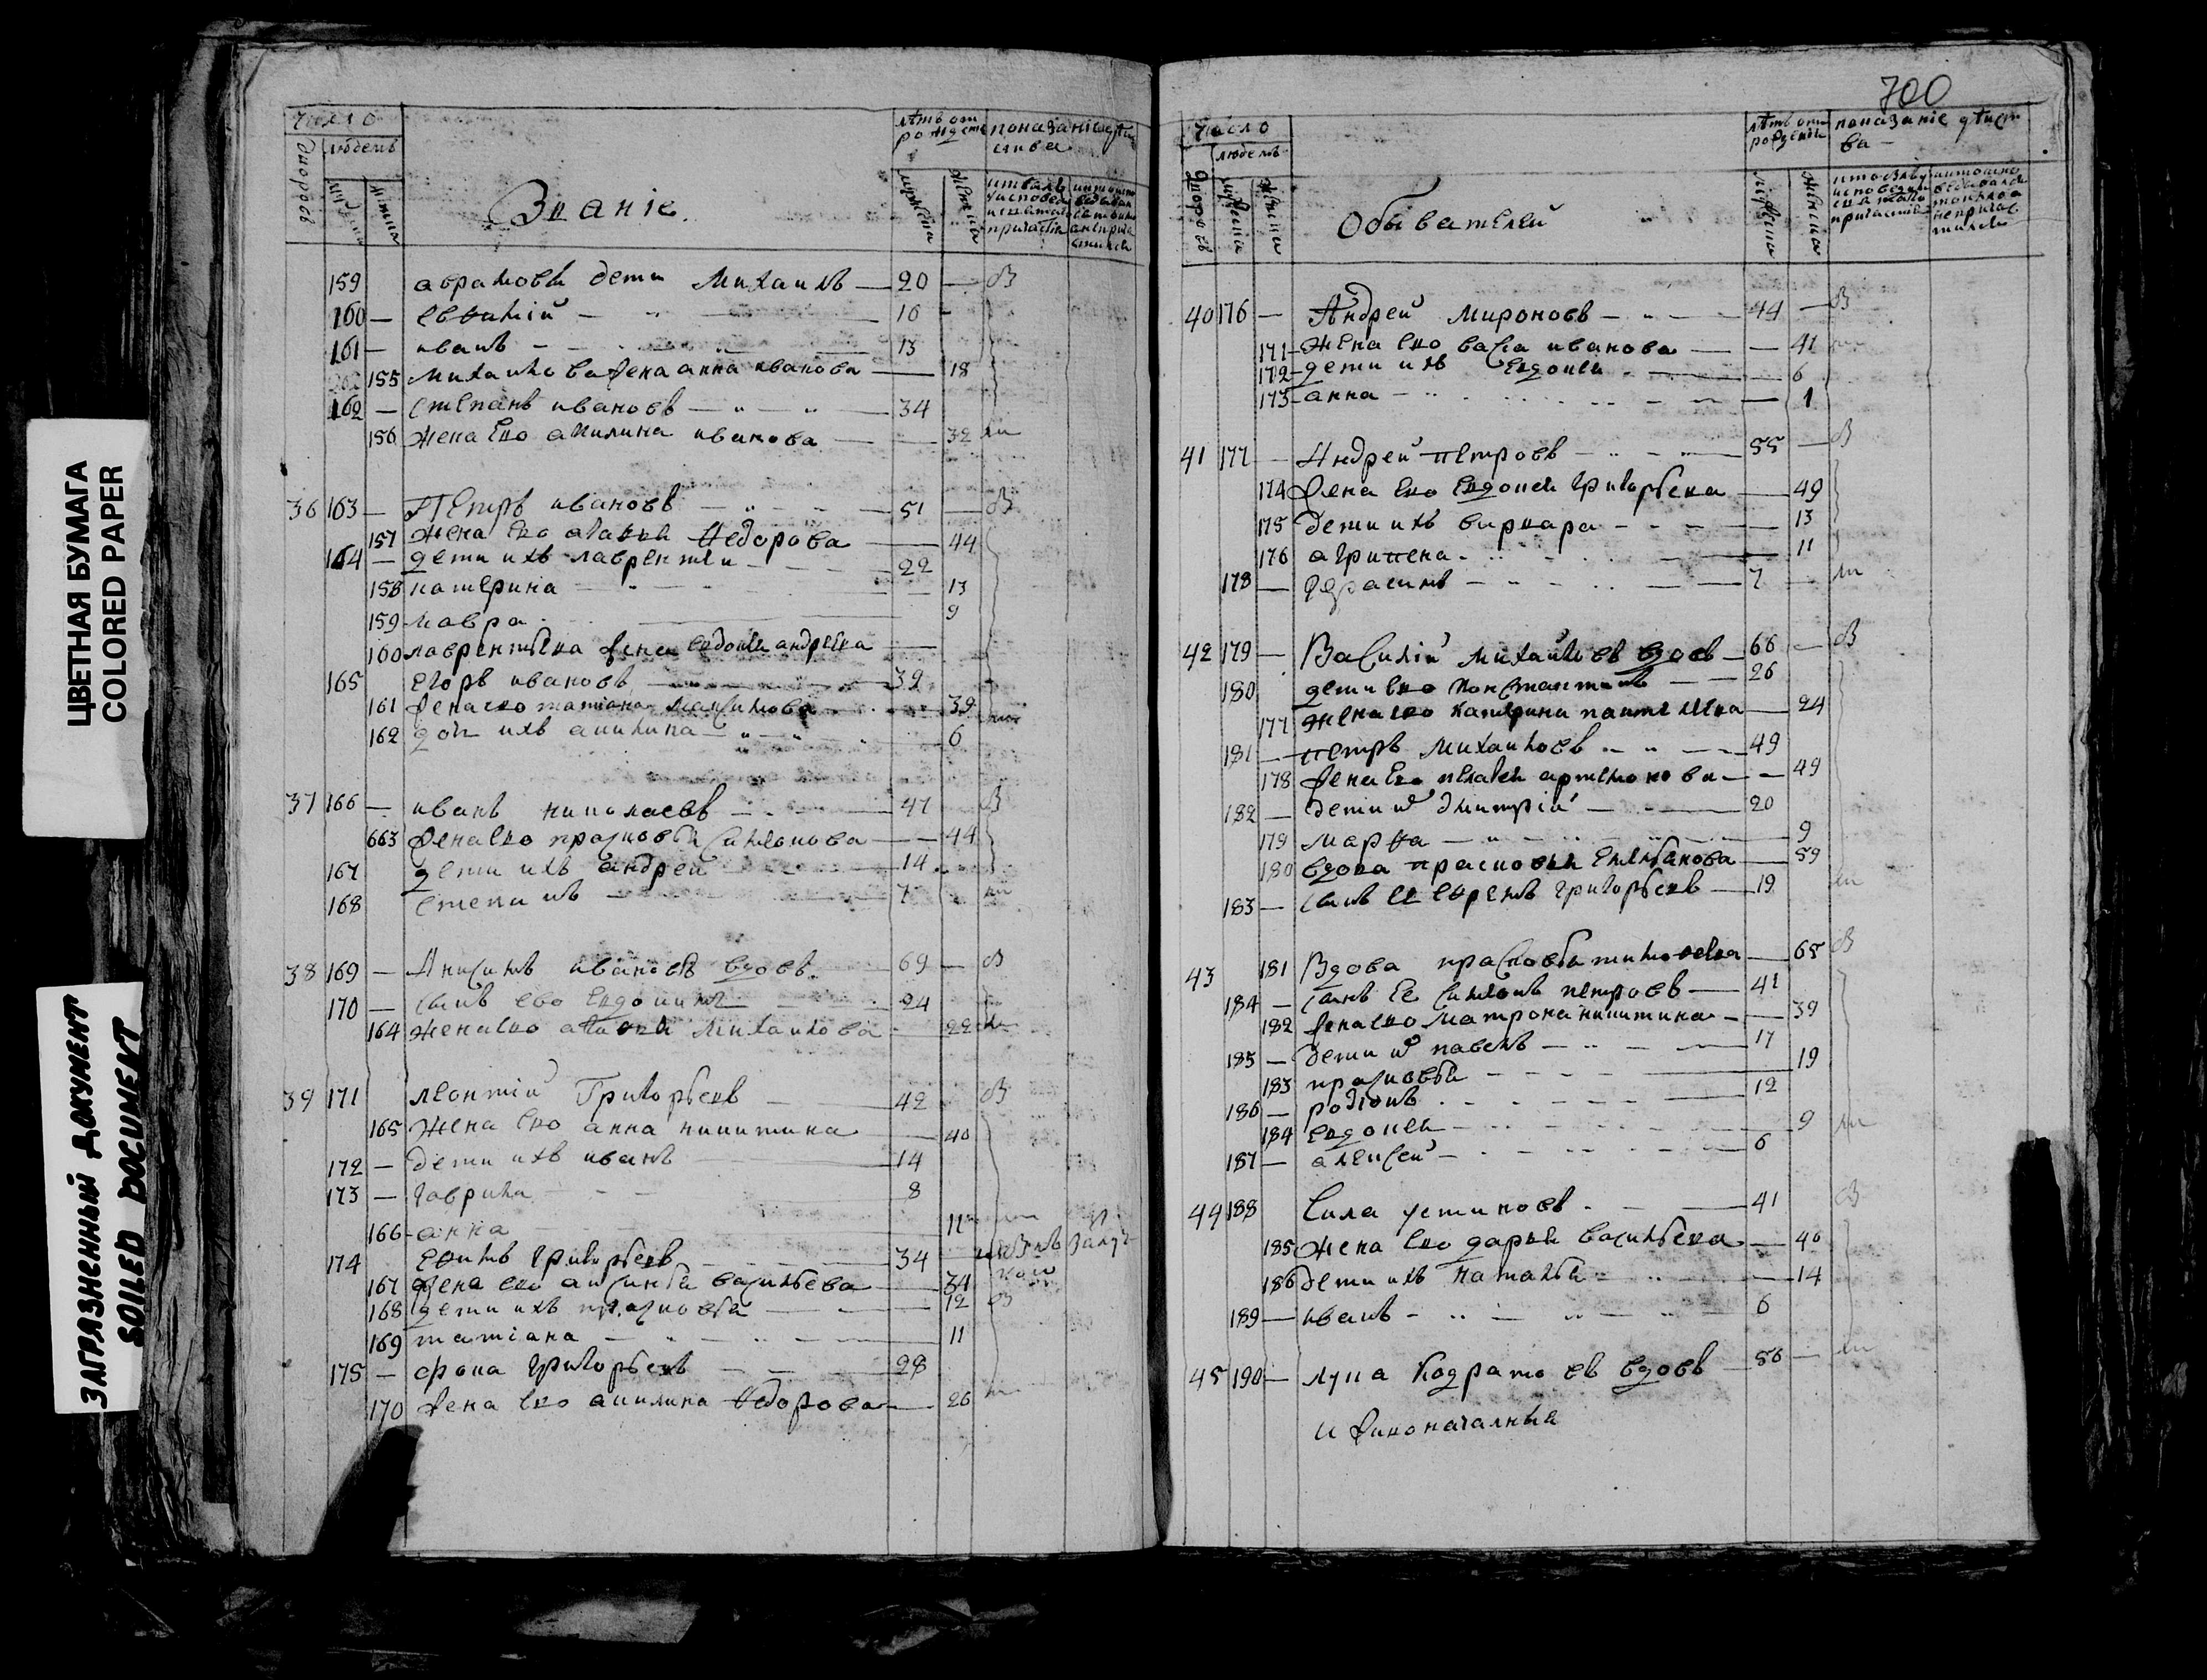 ЦВЕТНАЯ БУМАГА
COLORED PAPER
ЗАГРЯЗНЕННЫЙ ДОКУМЕНТ
SOILED DOCUMENT
число
дворовъ
людей
Званіе
159 аврамовы дети Михаилъ — 20 — В
160 — евфимій — 16
161 — иванъ — 13
155 михаилова жена анна иванова — 18
162 — степанъ ивановъ — 34
156 жена ево акилина иванова — 32
36 163 — Петръ ивановъ — 51 — В
157 жена ево агафия Федорова — 44
164 — дети ихъ лаврентеи — 22
158 катерина — 13
159 мавра — 9
160 лаврентьева жена евдокия андреева —
165 егоръ ивановъ — 39
161 жена ево татиана максимова — 39
162 доч ихъ акилина — 6
37 166 — иванъ николаевъ — 47 В
663 жена ево прасковья симеонова — 44
167 дети ихъ андреи — 14
168 степанъ — 7
38 169 — Анисимъ ивановъ вдовъ — 69 — В
170 — сынъ ево евдокимъ — 24
164 жена ево агафия михаилова — 22
39 171 леонтіи Григорьевъ — 42 В
165 жена ево анна никитина — 40
172 — дети ихъ иванъ — 14
173 — гаврила — 8
166 анна — 11
174 ефимъ григорьевъ — 34
167 жена ево аксинья васильева — 34
168 дети ихъ прасковья — 12 В
169 татіана — 11
175 — фока григорьевъ — 28
170 жена ево акилина Федорова — 26
700
число
дворовъ
людей
Обывателей
летъ от рожденія
показаніе действа
40 176 — Андрей мироновъ — 44 — В
171 жена ево васа иванова — 41
172 дети ихъ Евдокия — 6
173 анна — 1
41 177 — Андрей петровъ — 55 — В
174 жена ево евдокия григорьева — 49
175 дети ихъ варвара — 13
176 агрипена — 11
178 — герасимъ — 7
42 179 — Василій михайловъ вдовъ — 66 — В
180 дети ево константинъ — 26
177 жена ево катерина — 24
181 — петръ михаиловъ — 49
178 жена ево пелагея артемонова — 49
182 — дети их дмитрій — 20
179 марфа — 9
180 вдова прасковья емельянова — 59
183 — сынъ ее ефремъ григорьевъ — 19
43 181 Вдова прасковья тимофеева — 65 В
184 — сынъ ее симеонъ петровъ — 41
182 жена ево матрона никитина — 39
185 — дети их павелъ — 17
183 прасковья — 19
186 — родіонъ — 12
184 евдокия — 9
187 — алексей — 6
44 188 Сила устиновъ — 41 В
185 жена ево дария васильева — 40
186 дети ихъ наталья — 14
189 — иванъ — 6
45 190 — лука кодратоевъ вдовъ — 56